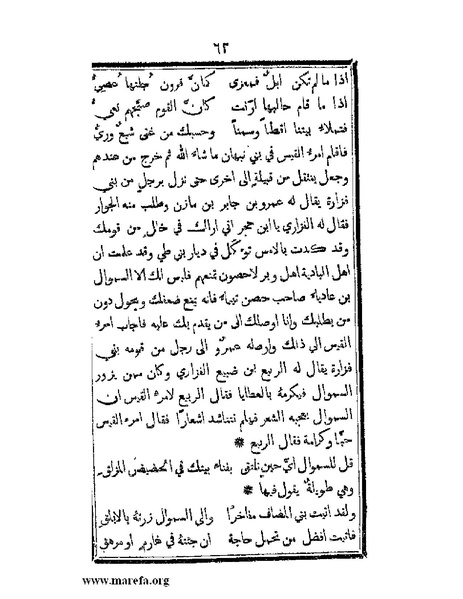 ٦٢
اذا ما لم تكن ابلٌ فمعزى كأنَّ قرون جلتها عصيُّ
اذا ما قام حالبها ارنّت كأنَّ القوم صبَّحهم نعيُّ
فتملاء بيتنا اقطًا وسمنًا وحسبك من غنى شبعٌ وريُّ
فاقام امرء القيس في بني نبهان ما شاء الله ثم خرج من عندهم
وجعل ينتقل من قبيلة الى اخرى حتى نزل برجل من بني
فزارة يقال له عمرو بن جابر بن مازن وطلب منه الجوار
فقال له الفزاري يا ابن حجر اني اراك في خلل من قومك
وقد كدت بالامس تؤكل في ديار بني طي وقد علمت ان
اهل البادية اهل وبر لا حصون تمنعهم فليس لك الا السموال
بن عادياء صاحب حصن تيماء فانه يمنع ضعفك ويحول دون
من يطلبك وانا اوصلك الى من يقدم بك عليه فاجاب امرء
القيس الى ذلك وارسله عمرو الى رجل من قومه بني
فزارة يقال له الربيع بن ضبيع الفزاري وكان ممن يزور
السموال فيكرمه بالعطايا فقال الربيع لامرء القيس ان
السموال يعجبه الشعر فهلم نتناشد اشعارًا فقال امرء القيس
حبًّا وكرامة فقال الربيع *
قل للسموال ايَّ حين نلتقي بفناء بيتك في الحضيض المزلق
وهي طويلة يقول فيها *
ولقد اتيت بني المضاف مفاخرًا والى السموال زرته بالابلق
فاتيت افضل من تحمل حاجة ان جئته في غارم او مرهق
www.marefa.org